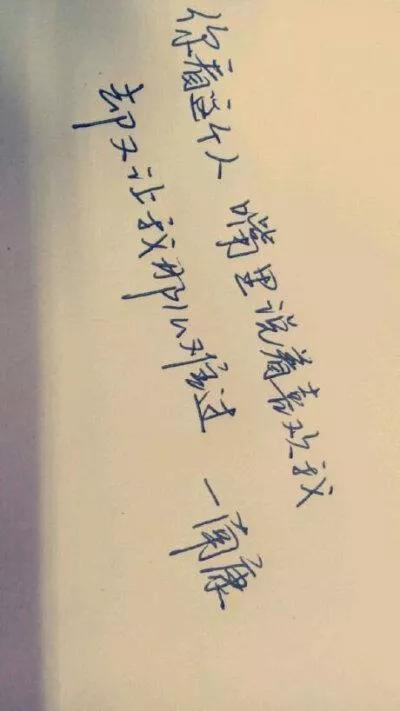 你看这个人 嘴里说着喜欢我
却又让我那么难过 一南康